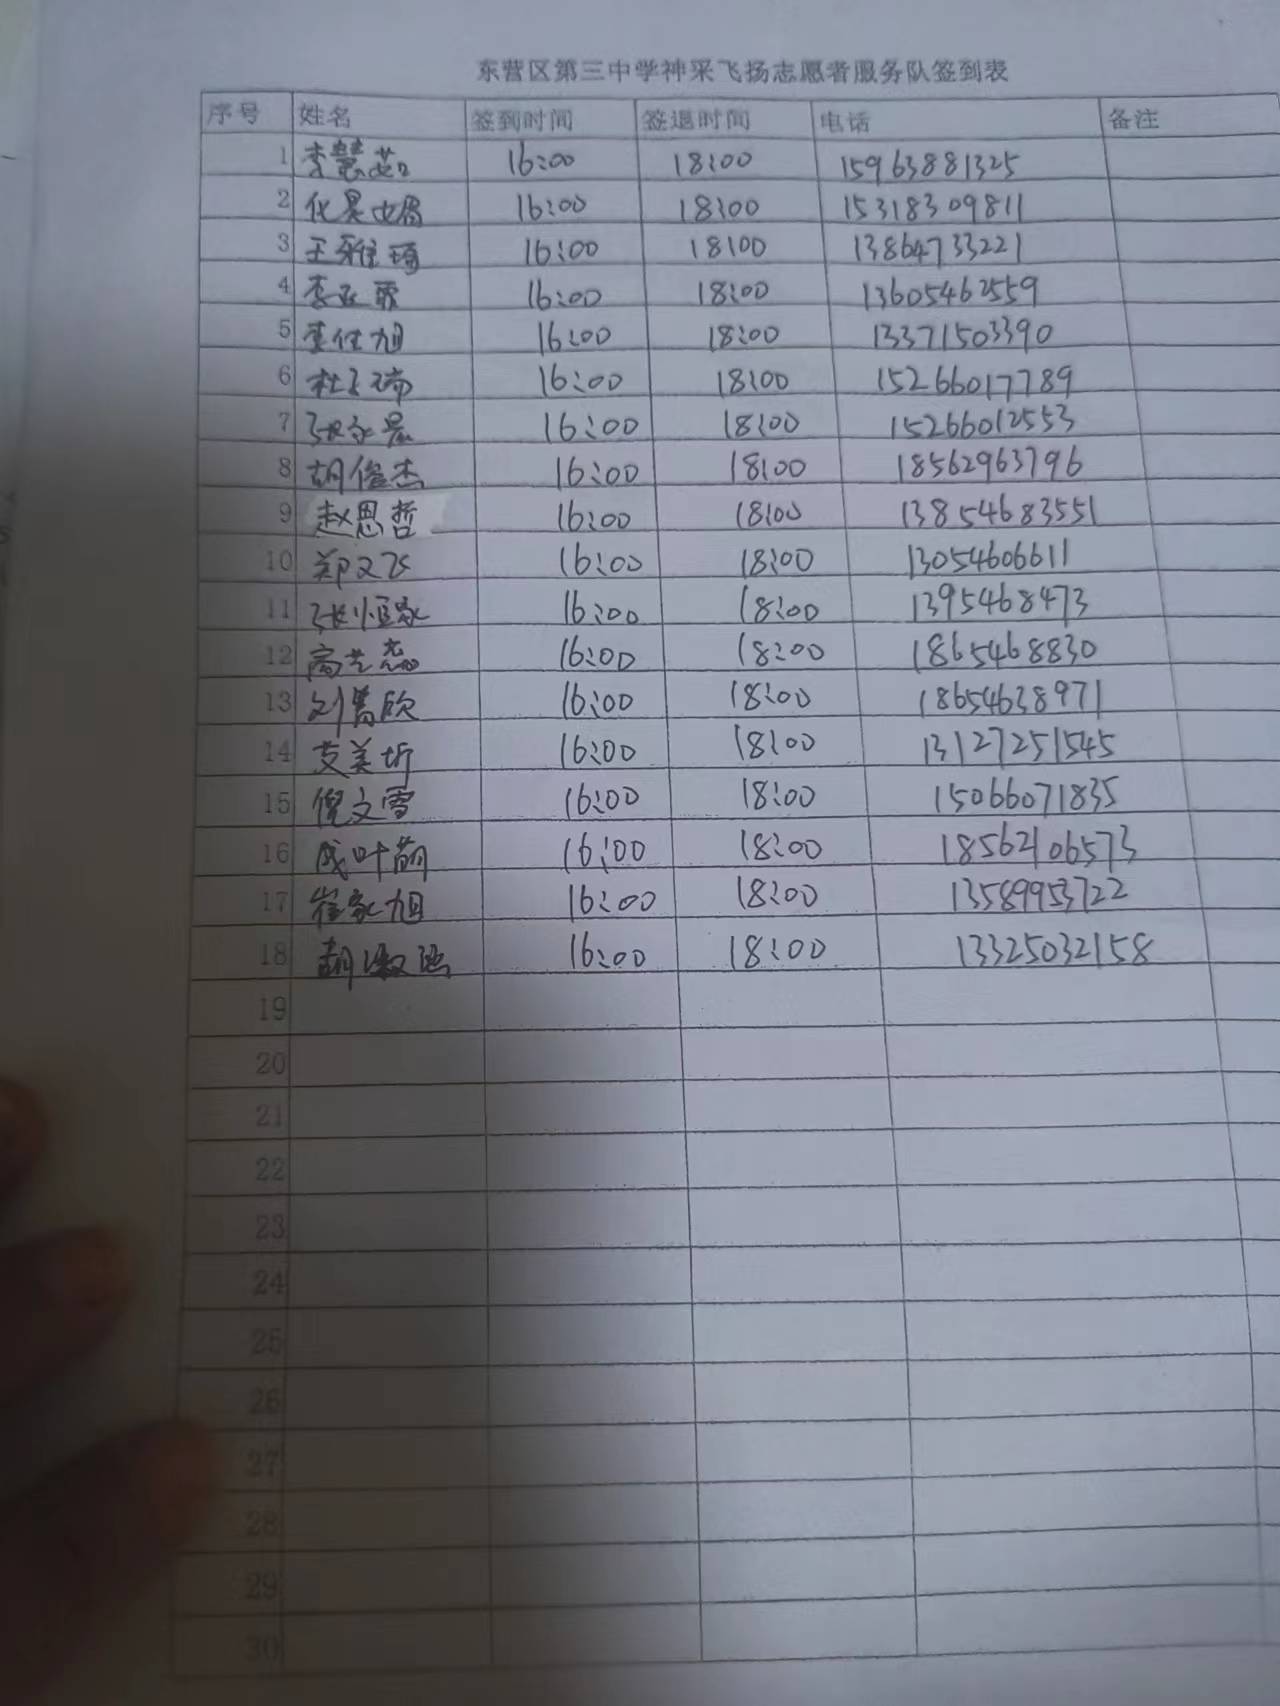 东营区第三中学神采飞扬志愿者服务队签到表
序号 姓名 签到时间 签退时间 电话 备注
1 李慧茹 16:00 18:00 15963881325
2 16:00 18:00 15318309811
3 王雅琦 16:00 18:00 13864733221
4 李亚霏 16:00 18:00 13605462559
5 16:00 18:00 13371503390
6 16:00 18:00 15266017789
7 16:00 18:00 15266012553
8 胡俊杰 16:00 18:00 18562963796
9 赵恩哲 16:00 18:00 13854683551
10 郑文飞 16:00 18:00 13054606611
11 张恒家 16:00 18:00 1395468473
12 16:00 18:00 1865468830
13 16:00 18:00 18654638971
14 艾美圻 16:00 18:00 13127251545
15 倪文雪 16:00 18:00 15066071835
16 成叶萌 16:00 18:00 18562106573
17 崔家旭 16:00 18:00 13589953722
18 16:00 18:00 13325032158
19
20
21
22
23
24
25
26
27
28
29
30